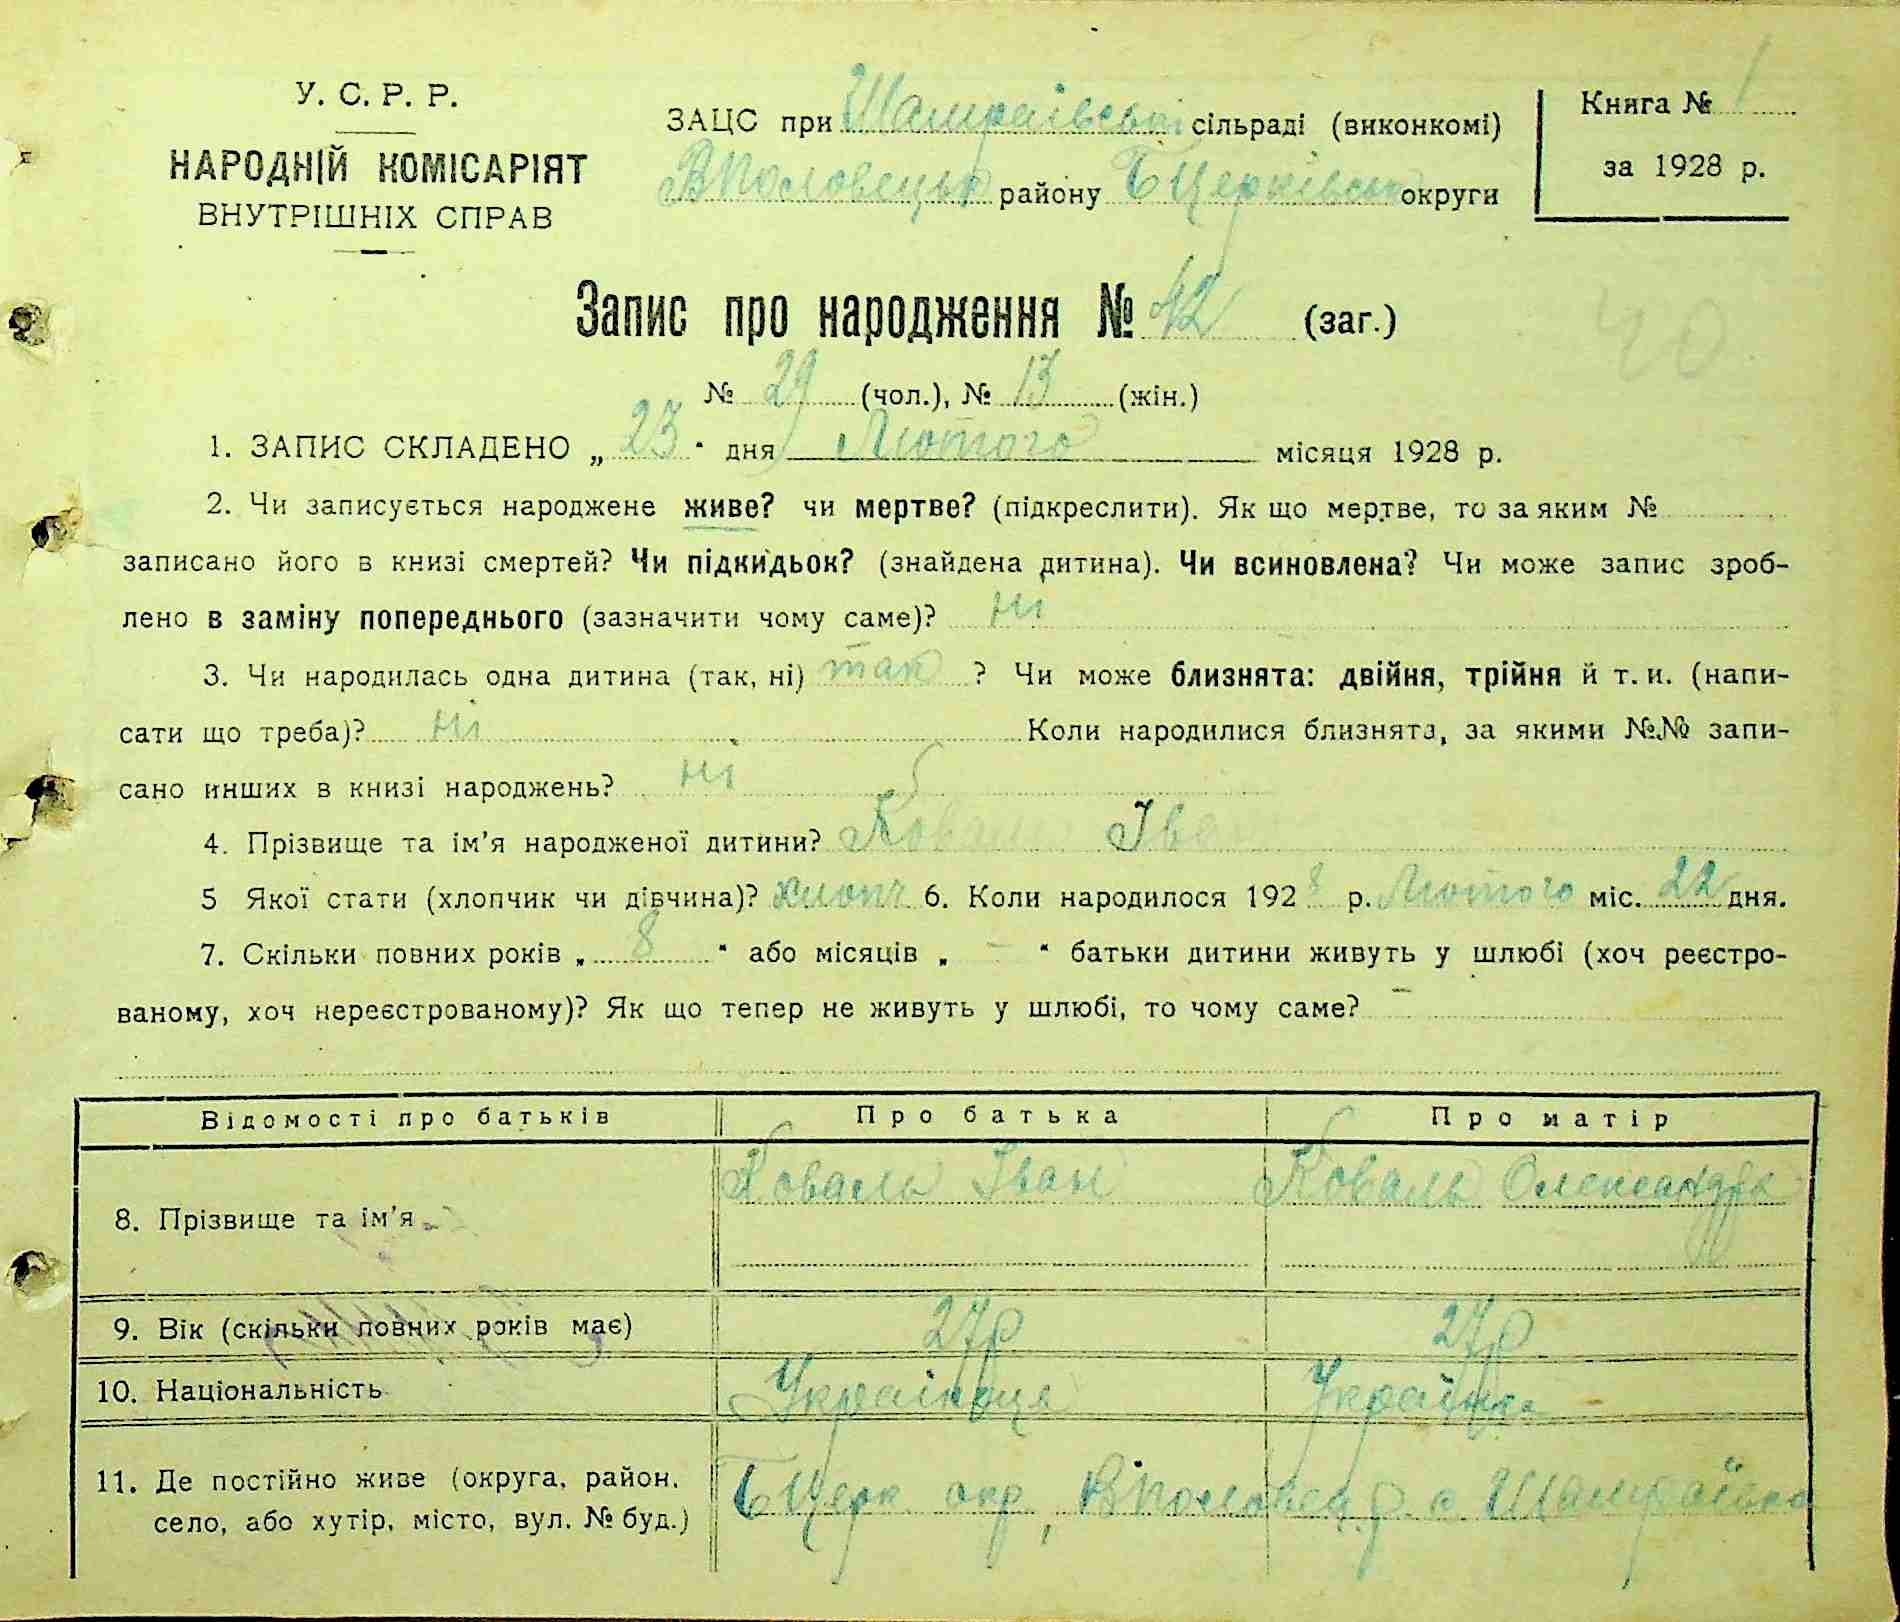 У. С. Р. Р.
НАРОДНІЙ КОМІСАРІЯТ
ВНУТРІШНІХ СПРАВ
ЗАЦС при Шамраївській сільраді (виконкомі)
ВПоловецьк району БЦерківськ округи
Книга № 1
за 1928 р.
Запис про народження № 42 (заг.)
40
№ 29 (чол.), № 13 (жін.)
1. ЗАПИС СКЛАДЕНО „ 23 “ дня Лютого місяця 1928 р.
2. Чи записується народжене живе? чи мертве? (підкреслити). Як що мертве, то за яким №
записано його в книзі смертей? Чи підкидьок? (знайдена дитина). Чи всиновлена? Чи може запис зроб-
лено в заміну попереднього (зазначити чому саме)? Ні
3. Чи народилась одна дитина (так, ні) так ? Чи може близнята: двійня, трійня й т. и. (напи-
сати що треба)? Ні Коли народилися близнята, за якими №№ запи-
сано инших в книзі народжень? Ні
4. Прізвище та ім'я народженої дитини? Коваль Іван
5 Якої стати (хлопчик чи дівчина)? хлопч 6. Коли народилося 1928 р. Лютого міс. 22 дня.
7. Скільки повних років „ 8 “ або місяців „ – “ батьки дитини живуть у шлюбі (хоч реєстро-
ваному, хоч нереєстрованому)? Як що тепер не живуть у шлюбі, то чому саме? –
Відомості про батьків Про батька Про матір
8. Прізвище та ім'я Коваль Іван Коваль Олександра
9. Вік (скільки повних років має) 27р 27р
10. Національність Українець Українка
11. Де постійно живе (округа, район,
село, або хутір, місто, вул. № буд.)
БЦерк окр, ВПоловец. р. с. Шамраївка